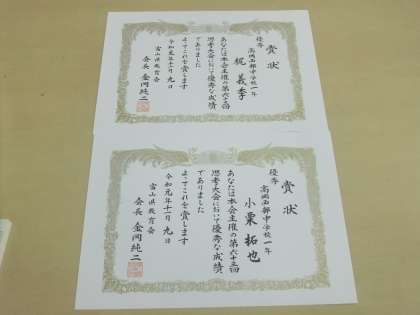 賞状
優秀
高岡西部中学校一年
梶 義季
あなたは本会主催の第六十三回
思考大会において優秀な成績
でありました
よってこれを賞します
令和元年十一月九日
富山県教育会
会長 金岡純二
賞状
優秀
高岡西部中学校一年
小栗 拓也
あなたは本会主催の第六十三回
思考大会において優秀な成績
でありました
よってこれを賞します
令和元年十一月九日
富山県教育会
会長 金岡純二